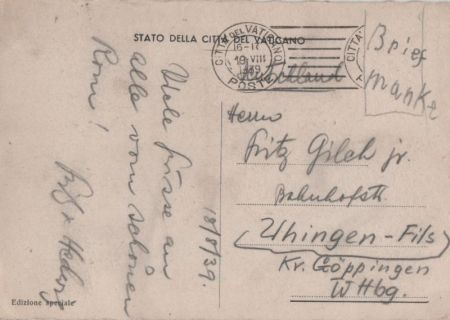 STATO DELLA CITTÀ DEL VATICANO
CITTÀ DEL VATICANO
19 VIII
POSTE
CITTÀ
Deutschland
Brief
marke
Viele Grüsse an
alle vom schönen
Rom!
18/8/39.
Herrn
Fritz Gilch jr.
Bahnhofstr.
Uhingen-Fils
Kr. Göppingen
W Hbg.
Edizione speciale